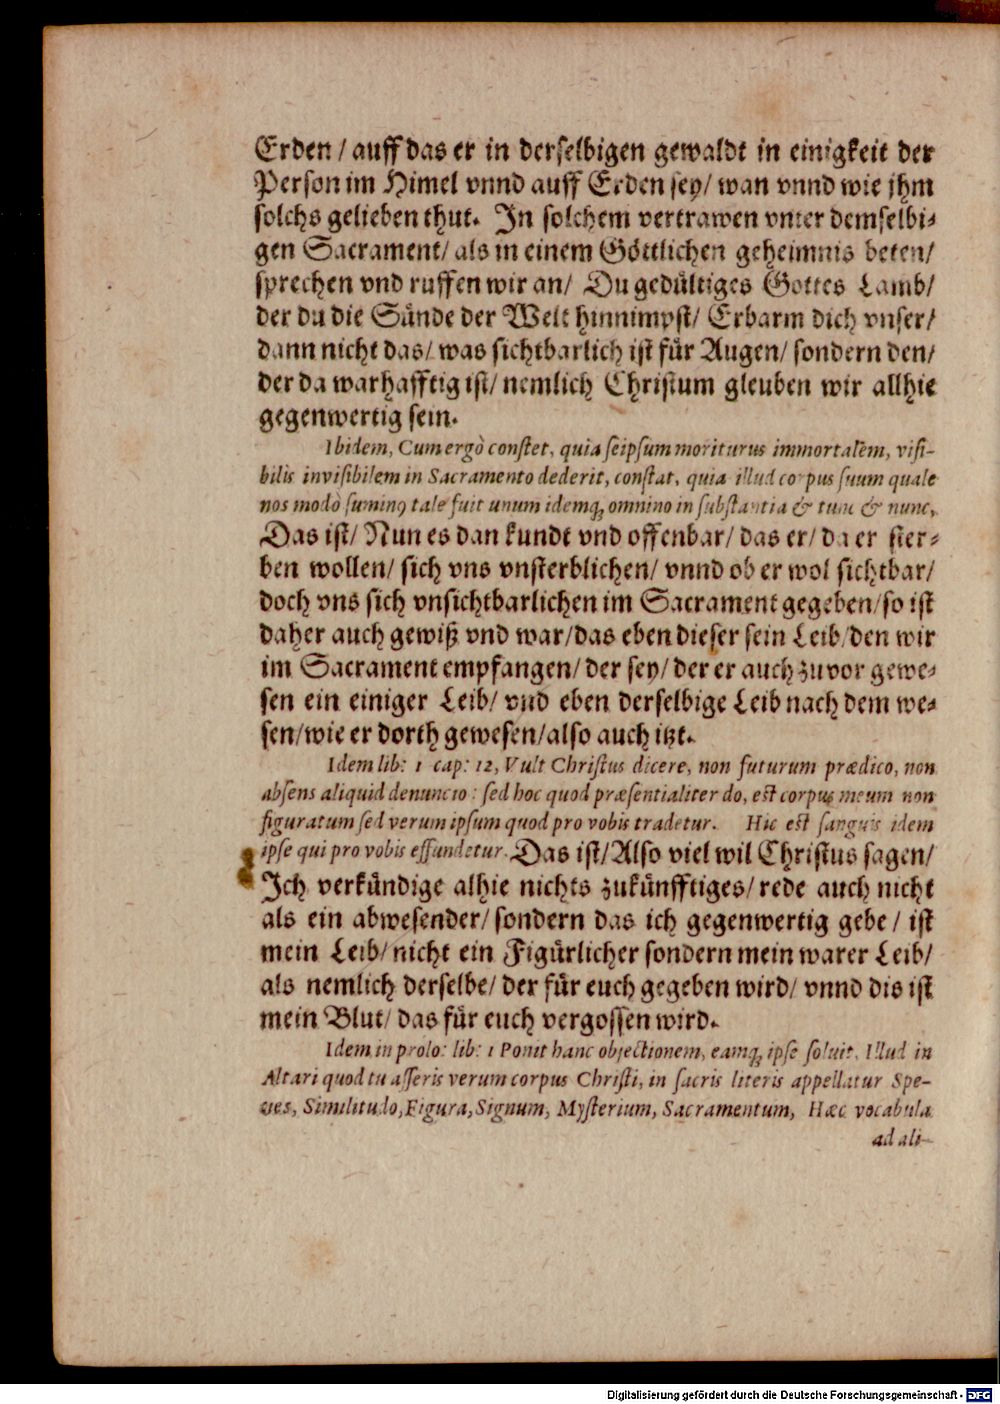 Erden / auff das er in derselbigen gewaldt in einigkeit der
Person im Himel vnnd auff Erden sey/ wan vnnd wie jhm
solchs gelieben thut. In solchem vertrawen vnter demselbi-
gen Sacrament/ als in einem Göttlichen geheimnis beten/
sprechen vnd ruffen wir an/ Du gedültiges Gottes Lamb/
der du die Sünde der Welt hinnimpst/ Erbarm dich vnser/
dann nicht das/ was sichtbarlich ist für Augen/ sondern den/
der da warhafftig ist/ nemlich Christum gleuben wir allhie
gegenwertig sein.
Ibidem, Cum ergò constet, quia seipsum moriturus immortalem, visi-
bilis invisibilem in Sacramento dederit, constat, quia illud corpus suum quale
nos modò sumimꝰ tale fuit unum idemq́; omnino in substantia & tunc & nunc,
Das ist/ Nun es dan kundt vnd offenbar/ das er/ da er ster-
ben wollen/ sich vns vnsterblichen/ vnnd ob er wol sichtbar/
doch vns sich vnsichtbarlichen im Sacrament gegeben/ so ist
daher auch gewiß vnd war/ das eben dieser sein Leib/ den wir
im Sacrament empfangen/ der sey/ der er auch zuvor gewe-
sen ein einiger Leib/ vnd eben derselbige Leib nach dem we-
sen/ wie er dorth gewesen/ also auch itzt.
Idem lib: 1 cap: 12, Vult Christus dicere, non futurum prædico, non
absens aliquid denuncio: sed hoc quod præsentialiter do, est corpus meum non
figuratum sed verum ipsum quod pro vobis tradetur. Hic est sanguis idem
ipse qui pro vobis effundetur. Das ist/ Also viel wil Christus sagen/
Ich verkündige alhie nichts zukünfftiges/ rede auch nicht
als ein abwesender/ sondern das ich gegenwertig gebe / ist
mein Leib/ nicht ein Figürlicher sondern mein warer Leib/
als nemlich derselbe/ der für euch gegeben wird/ vnnd dis ist
mein Blut/ das für euch vergossen wird.
Idem in prolo: lib: 1 Ponit hanc objectionem, eamq́; ipse soluit, Illud in
Altari quod tu asseris verum corpus Christi, in sacris literis appellatur Spe-
cies, Similitudo, Figura, Signum, Mysterium, Sacramentum, Hæc vocabula
ad ali-
Digitalisierung gefördert durch die Deutsche Forschungsgemeinschaft - DFG